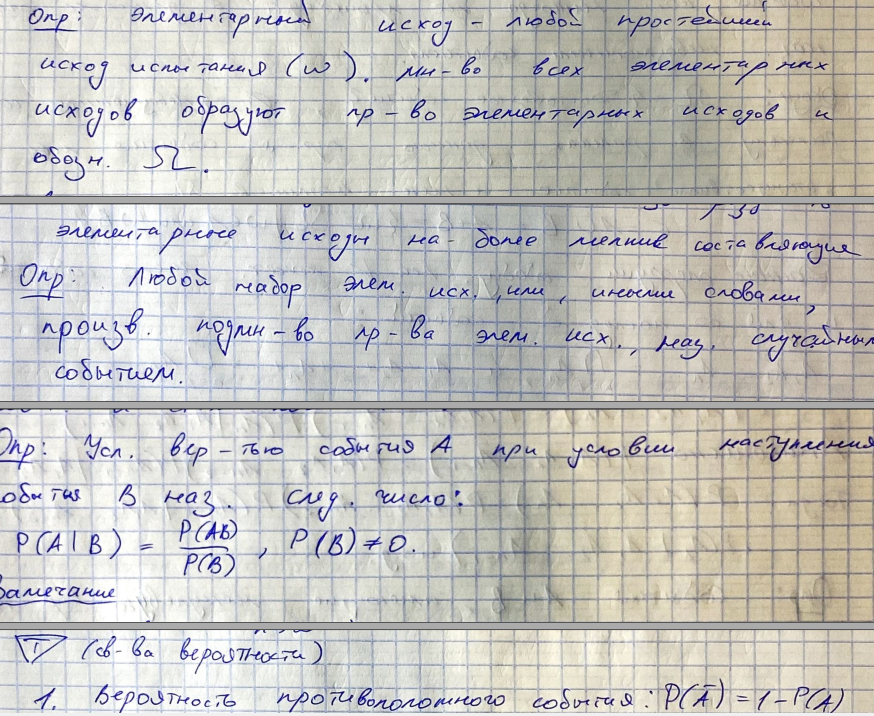 Опр: Элементарный исход - любой простейший
исход испытания (ω). мн-во всех элементарных
исходов образуют пр-во элементарных исходов и
обозн. Ω.
элементарные исходы на более мелкие составляющие
Опр: Любой набор элем. исх., или, иными словами,
произв. подмн-во пр-ва элем. исх., наз. случайным
событием.
Опр: Усл. вер-тью события A при условии наступления
события B наз. след. число:
P(A|B) = P(AB)/P(B), P(B) ≠ 0.
Замечание
T (св-ва вероятности)
1. Вероятность противоположного события: P(Ā) = 1 - P(A)